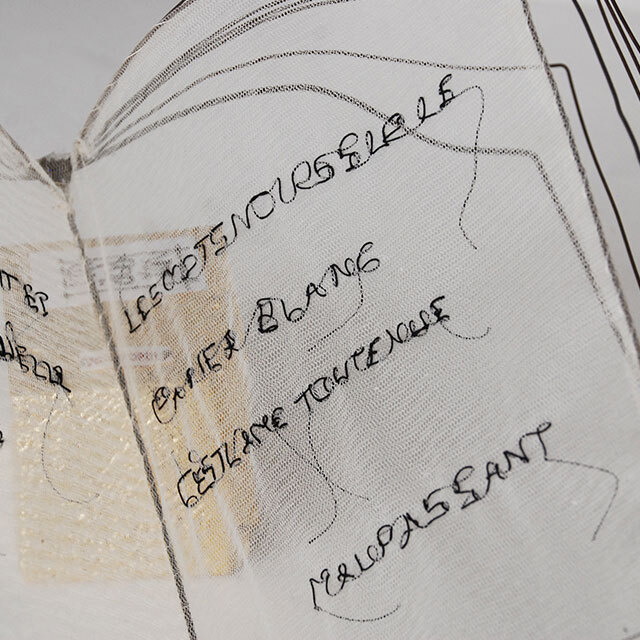 LES MOTS NOIRS SUR LE
PAPIER BLANC
C'EST L'AME TOUTE NUE
MAUPASSANT